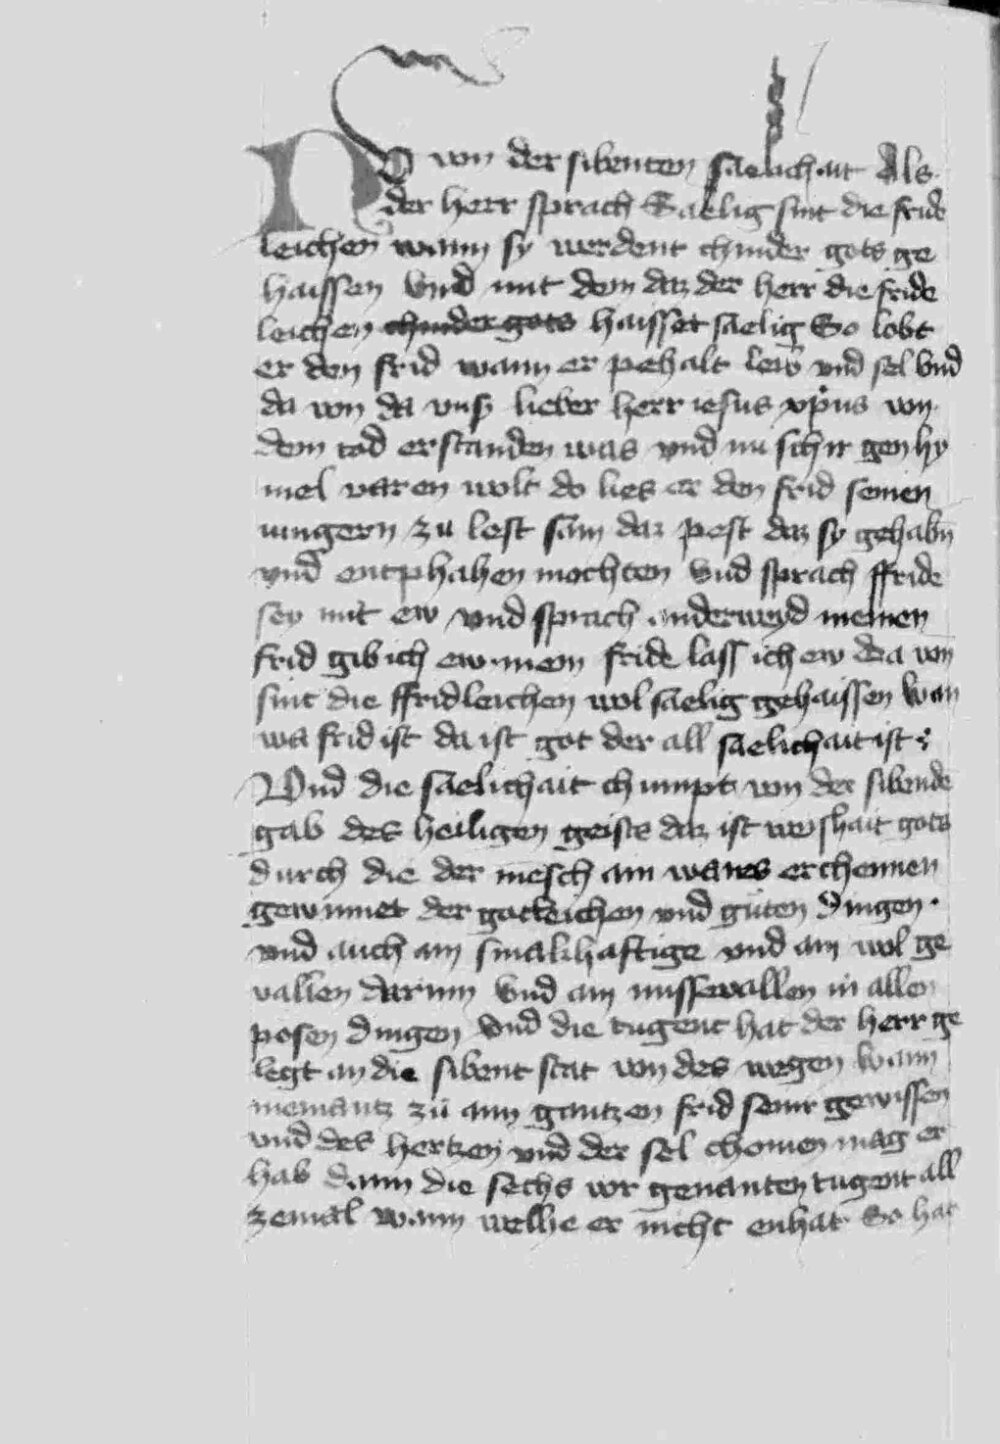 NO von der sibenten saelichait Als
der herr sprach Saelig sint die frid
leichen wann sy werdent chinder gots ge
haissen Vnd mit dem daz der herr die fride
leichen chinder gots haisset saelig So lobt
er den frid wann er pehalt leib vnd sel Vnd
da von da vnser lieber herr iesus xpus von
dem tod erstanden was vnd nu schir gen hy
mel varen wolt do lies er den frid seinen
iungern zu lest sam daz pest daz sy gehabn
vnd entphahen mochten Vnd sprach ffride
sey mit ew vnd sprach anderweyd meinen
frid gib ich ew mein fride lass ich ew da von
sint die ffridleichen wol saelig gehaissen wan
wa frid ist da ist got der all saelichait ist
Vnd die saelichait chumpt von der sibende
gab des heiligen geists daz ist weishait gots
durch die der mesch ain wares erchennen
gewinnet der gotleichen vnd guten dingen
vnd auch ain smakhaftige vnd ain wol ge
vallen darinn Vnd ain missevallen in allen
posen dingen Vnd die tugent hat der herr ge
legt an die sibent stat von des wegen wann
niemantz zu ainn gantzen frid seinr gewissen
vnd des hertzen vnd der sel chomen mag er
hab dann die sechs vor genanten tugent all
zemal wann welhe er nicht enhat So hat